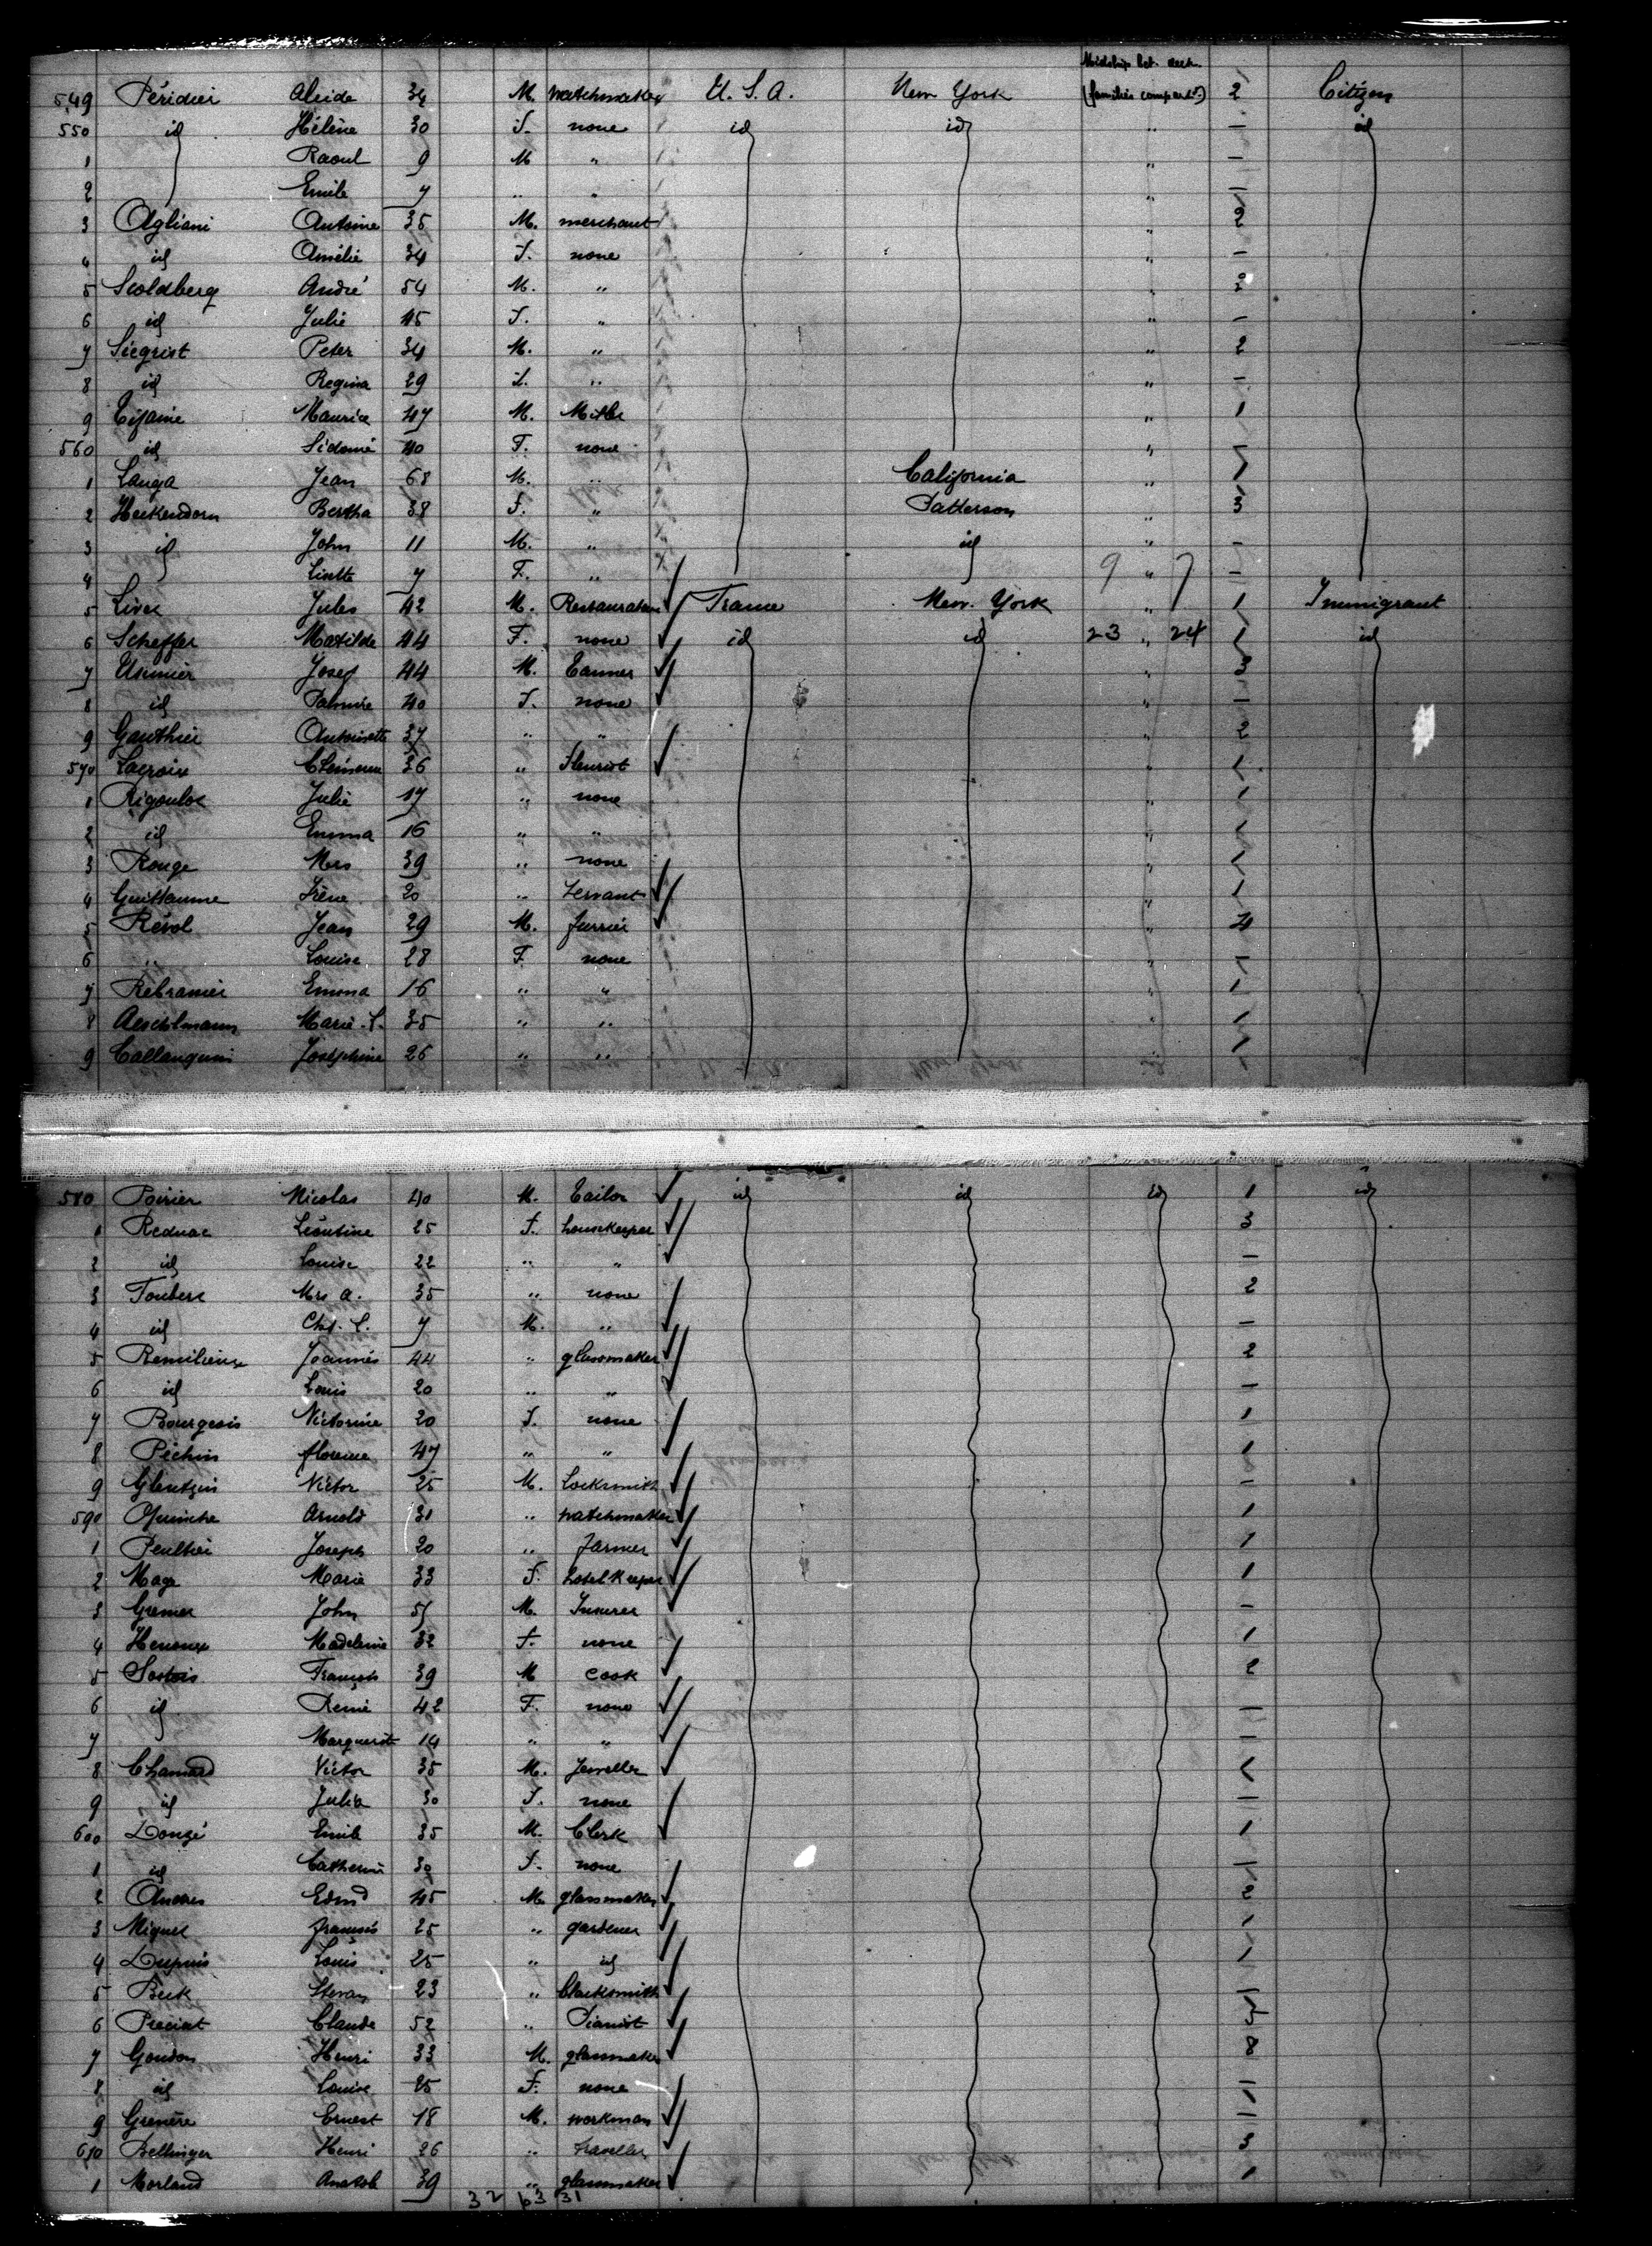 Midship bet. deck
549 Péridier Alcide 34 M. watchmaker U. S. A. New York (families compart.) 2 Citizen
550 id Hélène 30 F. none id id " — id
1 Raoul 9 M " " —
2 Emile 7 " " " —
3 Agliani Antoine 35 M. merchant " 2
4 id Amélie 34 F. none " —
5 Scoldberg André 54 M. " " 2
6 id Julie 45 F. " " —
7 Siegrist Peter 34 M. " " 2
8 id Regina 29 F. " " —
9 Maurice 47 M. " 1
560 id Sidonie 40 F. none " —
1 Langa Jean 68 M. " California " 1
2 Heckendorn Bertha 38 F. " Patterson " 3
3 id John 11 M. " id " —
4 Lisette 7 F. " 9 " 7 —
5 Jules 42 M. Restaurateur France New York " 1 Immigrant
6 Scheffer Matilde 44 F. none id id 23 " 24 1 id
7 Usinier Josef 44 M. Tanner " 3
8 id Palmire 40 F. none " —
9 Gauthier Antoinette 37 " " " 2
570 Lacroix 36 " fleurist " 1
1 Rigoulot Julie 17 " none " 1
2 id Emma 16 " " " 1
3 Rouge Mrs 39 " none " 1
4 Guillaume Irène 20 " servant " 1
5 Révol Jean 29 M. furrier " 4
6 " Louise 28 F. none " —
7 Emma 16 " " " 1
8 Aeschlmann Marie L. 35 " " " 1
9 Josephine 26 " " " 1
580 Poirier Nicolas 40 M. Tailor id id id 1 id
1 Léontine 25 F. housekeeper 3
2 id Louise 22 " " —
3 Mrs A. 35 " none 2
4 id Chs. L. 7 M. " —
5 Remilieux Joannès 44 " glassmaker 2
6 id Louis 20 " " —
7 Bourgeois Victorine 20 F. none 1
8 Péchin florence 47 " " 1
9 Victor 25 M. Locksmith —
590 Arnold 31 " watchmaker 1
1 Joseph 20 " farmer 1
2 Marie 33 F. hotelkeeper 1
3 John 51 M. Insurer —
4 Madeleine 32 F. none 1
5 François 39 M cook 2
6 id 42 F. none —
7 Marguerite 14 " " —
8 Chamard Victor 35 M. Jeweller 1
9 id Julia 30 F. none —
600 Donzé Emile 35 M. Clerk 1
1 id Catherine 30 F. none —
2 Edmd 45 M. glassmaker 2
3 Miquel françois 25 " gardener 1
4 Dupuis Louis 25 " id 1
5 Beck Stevan 23 " blacksmith —
6 Claude 52 " Pianist
7 Goudon Henri 33 M. glassmaker 8
8 id Louise 25 F. none —
9 Ernest 18 M. workman —
610 Bellinger Henri 26 " traveller 3
1 Morland Anatole 39 " glassmaker 1
32 63 31